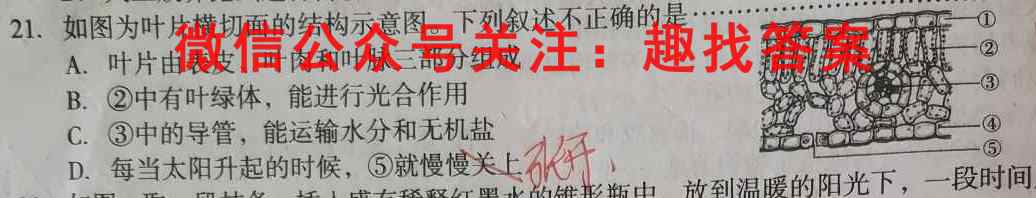 21. 如图为叶片横切面的结构示意图。下列叙述不正确的是
微信公众号关注：趣找答案
A. 叶片由表皮、叶肉和叶脉三部分组成
B. ②中有叶绿体，能进行光合作用
C. ③中的导管，能运输水分和无机盐
D. 每当太阳升起的时候，⑤就慢慢关上
①
②
③
④
⑤
放到温暖的阳光下，一段时间